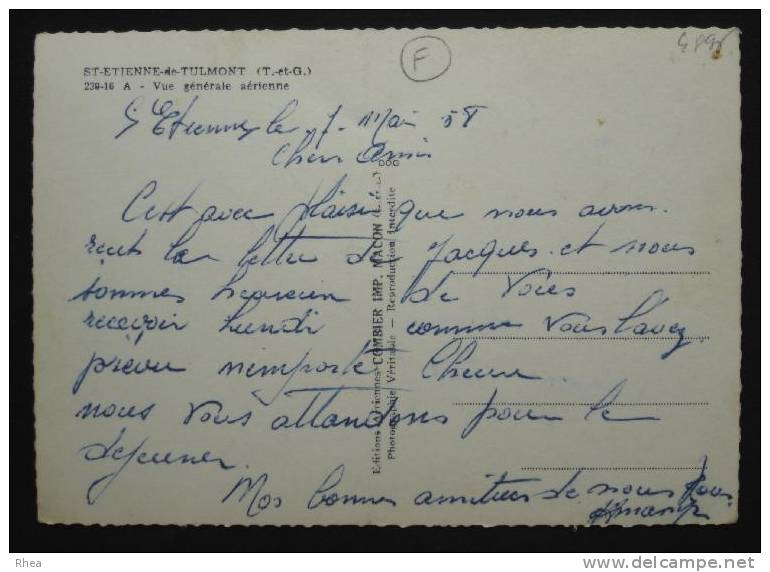 ST-ETIENNE-de-TULMONT (T.-et-G.)
239-16 A - Vue générale aérienne
F
St Etienne le 7 Mai 58
Chers Amis
C'est avec plaisir que nous avons
reçut la lettre de Jacques et nous
sommes heureux de vous
recevoir Lundi comme vous l'avez
prévu n'importe l'heure
nous vous attandons pour le
dejeuner.
Mos bonnes amitiers de nous tous
Editions Aériennes COMBIER IMP. MACON
Photographie Véritable — Reproduction Interdite
Rhea
delcampe.net